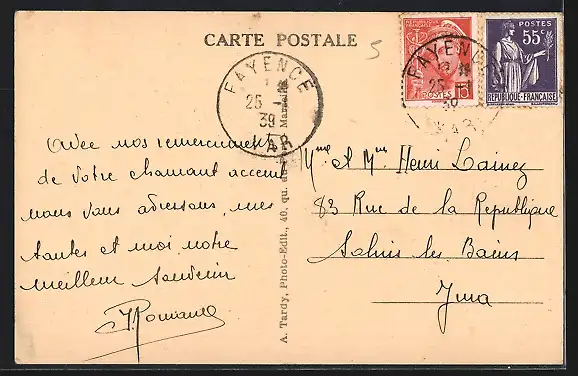 CARTE POSTALE
5
REPUBLIQUE FRANÇAISE
POSTES
POSTES
55c
REPUBLIQUE-FRANÇAISE
FAYENCE
25
39
VAR
FAYENCE
25
39
VAR
Avec nos remerciements
de votre charmant accueil
nous vous adressons, mes
tantes et moi notre
meilleur souvenir
A. Tardy, Photo-Edit., 40, qu. du Port, Marseille
Mme et Mr Henri Lainez
83 Rue de la Republique
Salins les Bains
Jura